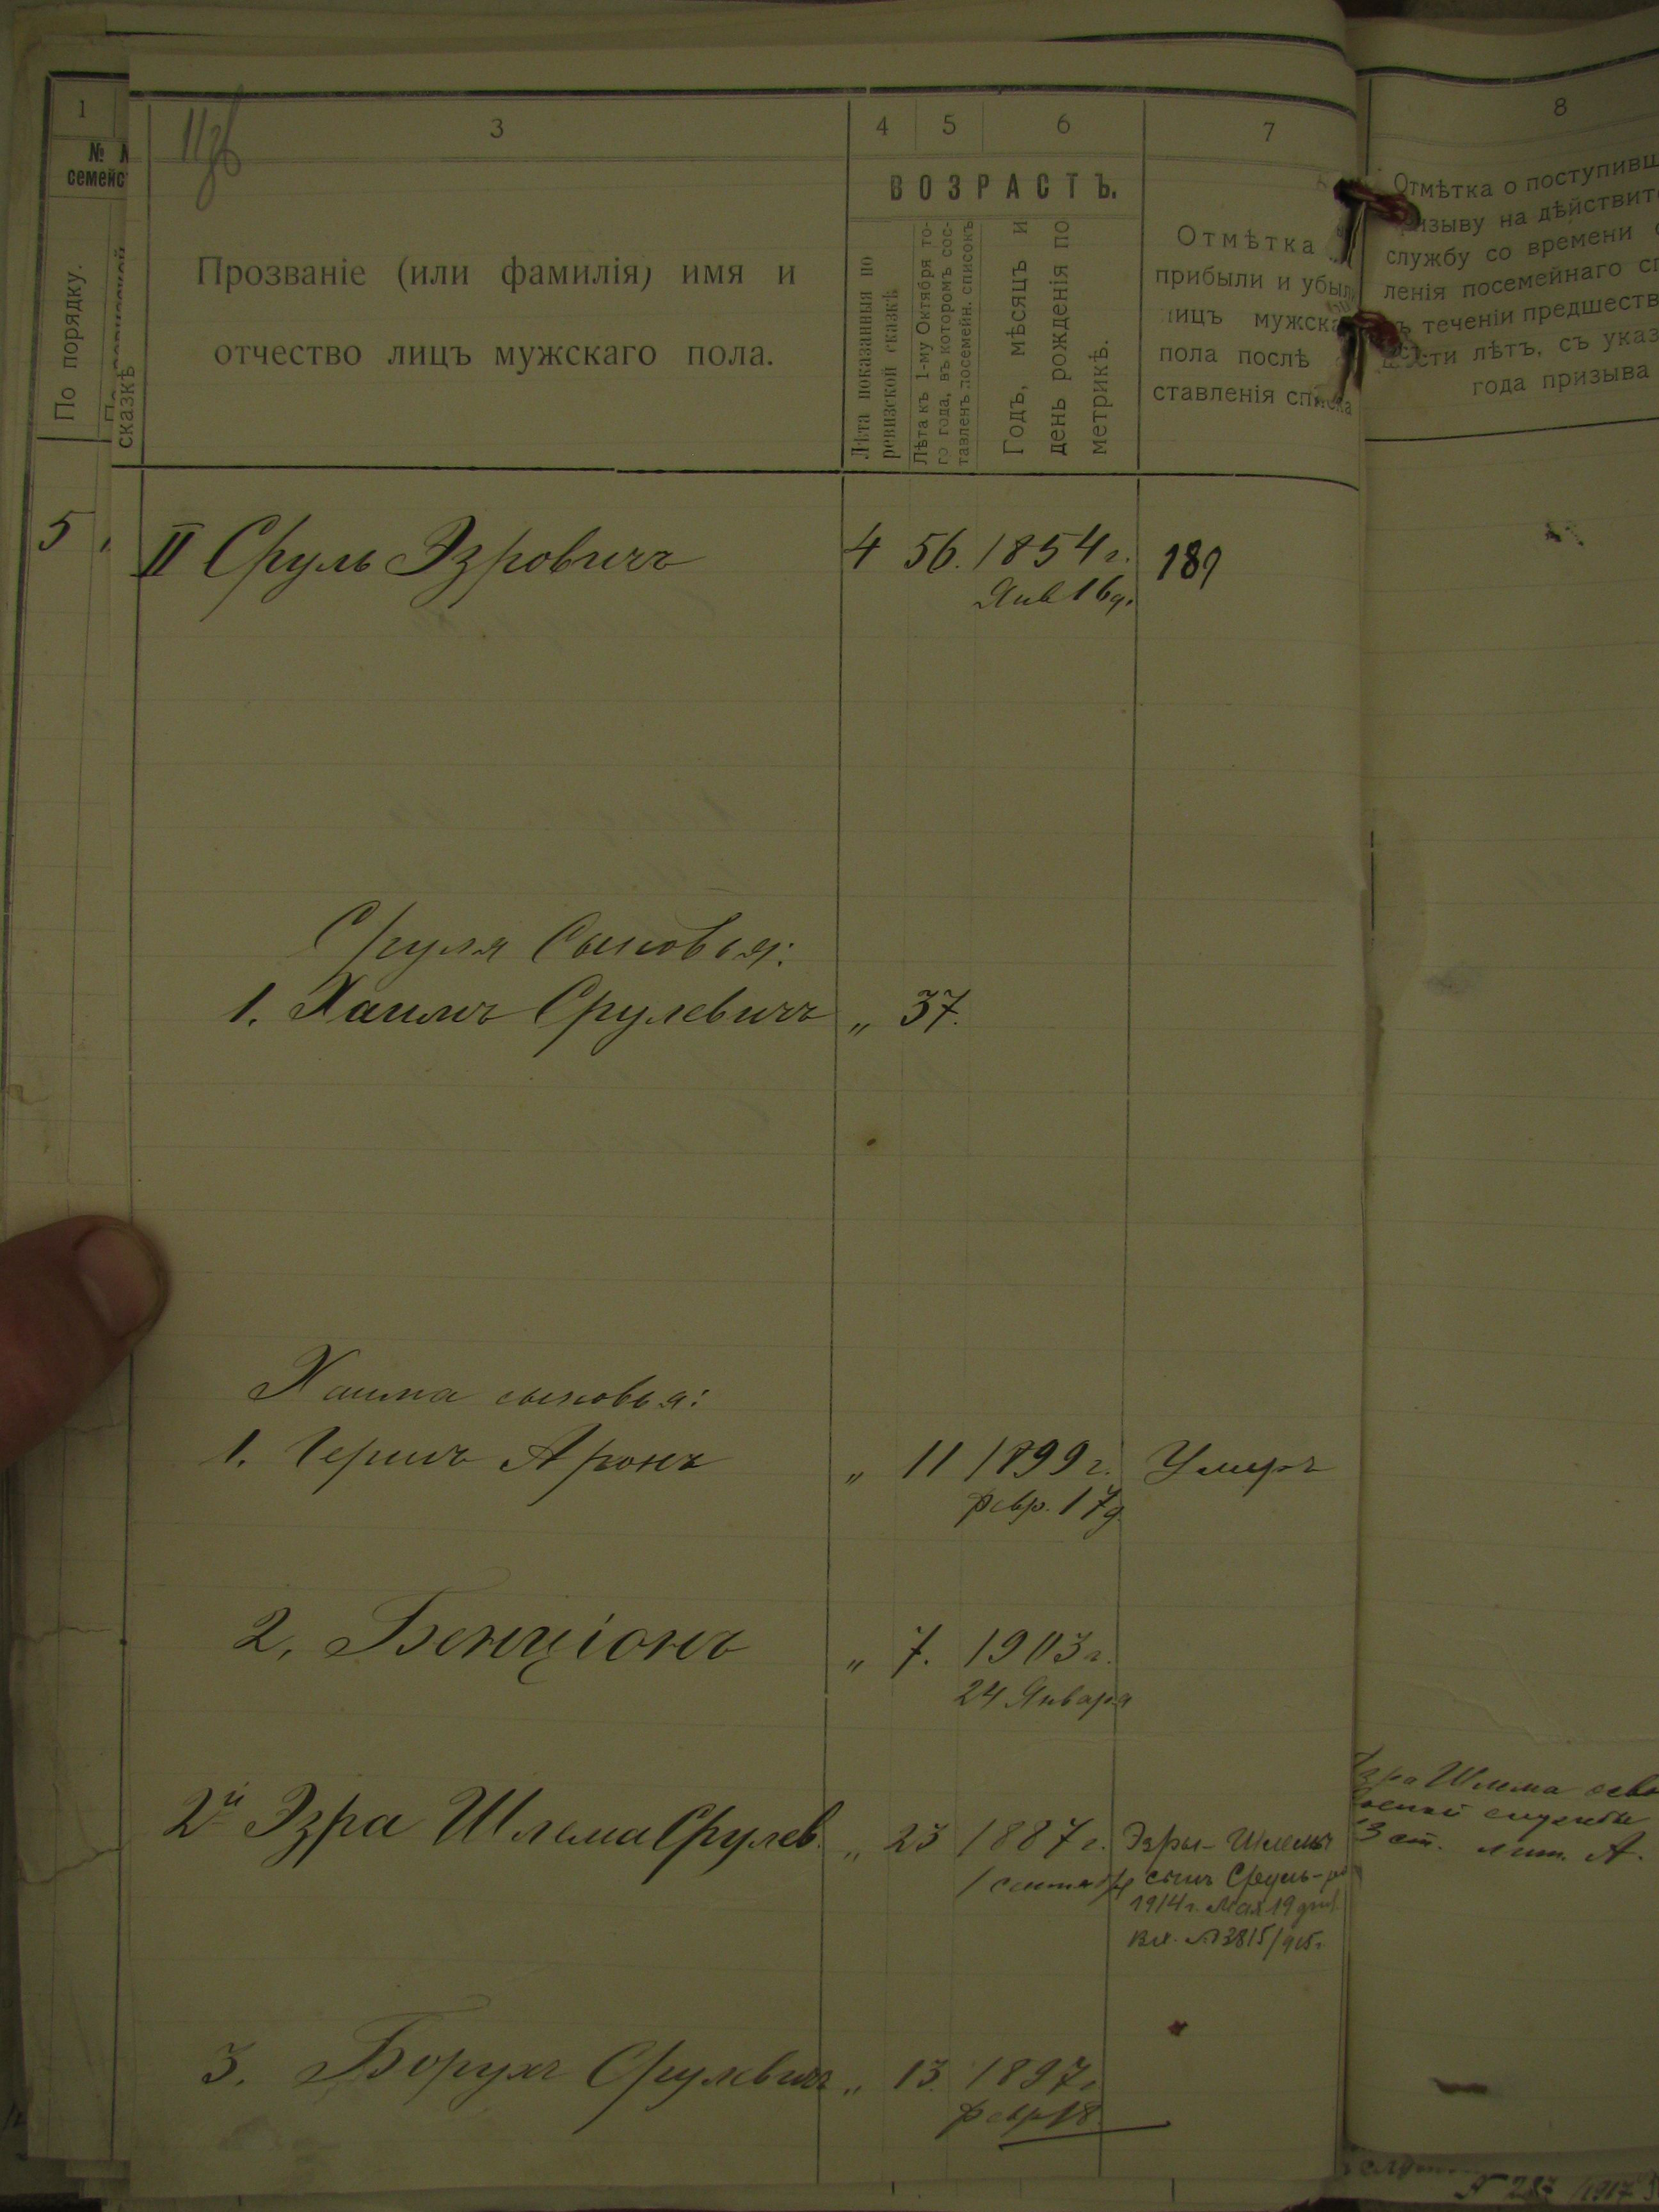 1
№ №
семейс
По порядку.
сказкѣ
3
Прозваніе (или фамилія) имя и
отчество лицъ мужскаго пола.
4 5 6
ВОЗРАСТЪ.
Лѣта показанныя по
ревизской сказкѣ
Лѣта къ 1-му Октября то-
го года, въ которомъ сос-
тавленъ посемейн. списокъ
Годъ, мѣсяцъ и
день рожденія по
метрикѣ.
7
Отмѣтка
прибыли и убыли
лицъ мужска
пола послѣ
ставленія списка
8
Отмѣтка о поступивш
ризыву на дѣйствит
службу со времени
ленія посемейнаго сп
ъ теченіи предшеств
шести лѣтъ, съ указ
года призыва
5 II Сруль Эзровичъ 4 56. 1854 г. 189
Янв 16 д.
Сруля Сыновья:
1. Хаимъ Срулевичъ „ 37.
Хаима сыновья:
1. Гершъ Аронъ „ 11 1899 г. Умеръ
февр. 17 д.
2. Бенціонъ „ 7. 1903 г.
24 Января
2й Эзра Шлема Срулев. „ 23 1887 г. Эзры-Шлемы
1 сентябр сынъ Сруль-
1914 г. Мая 19 дня
вх. №3815/915г.
3. Борухъ Срулевичъ „ 13. 1897г.
февр 18.
Эзра Шлема осво
военной службы
3 ст. лит. А.
№ 287 /1917